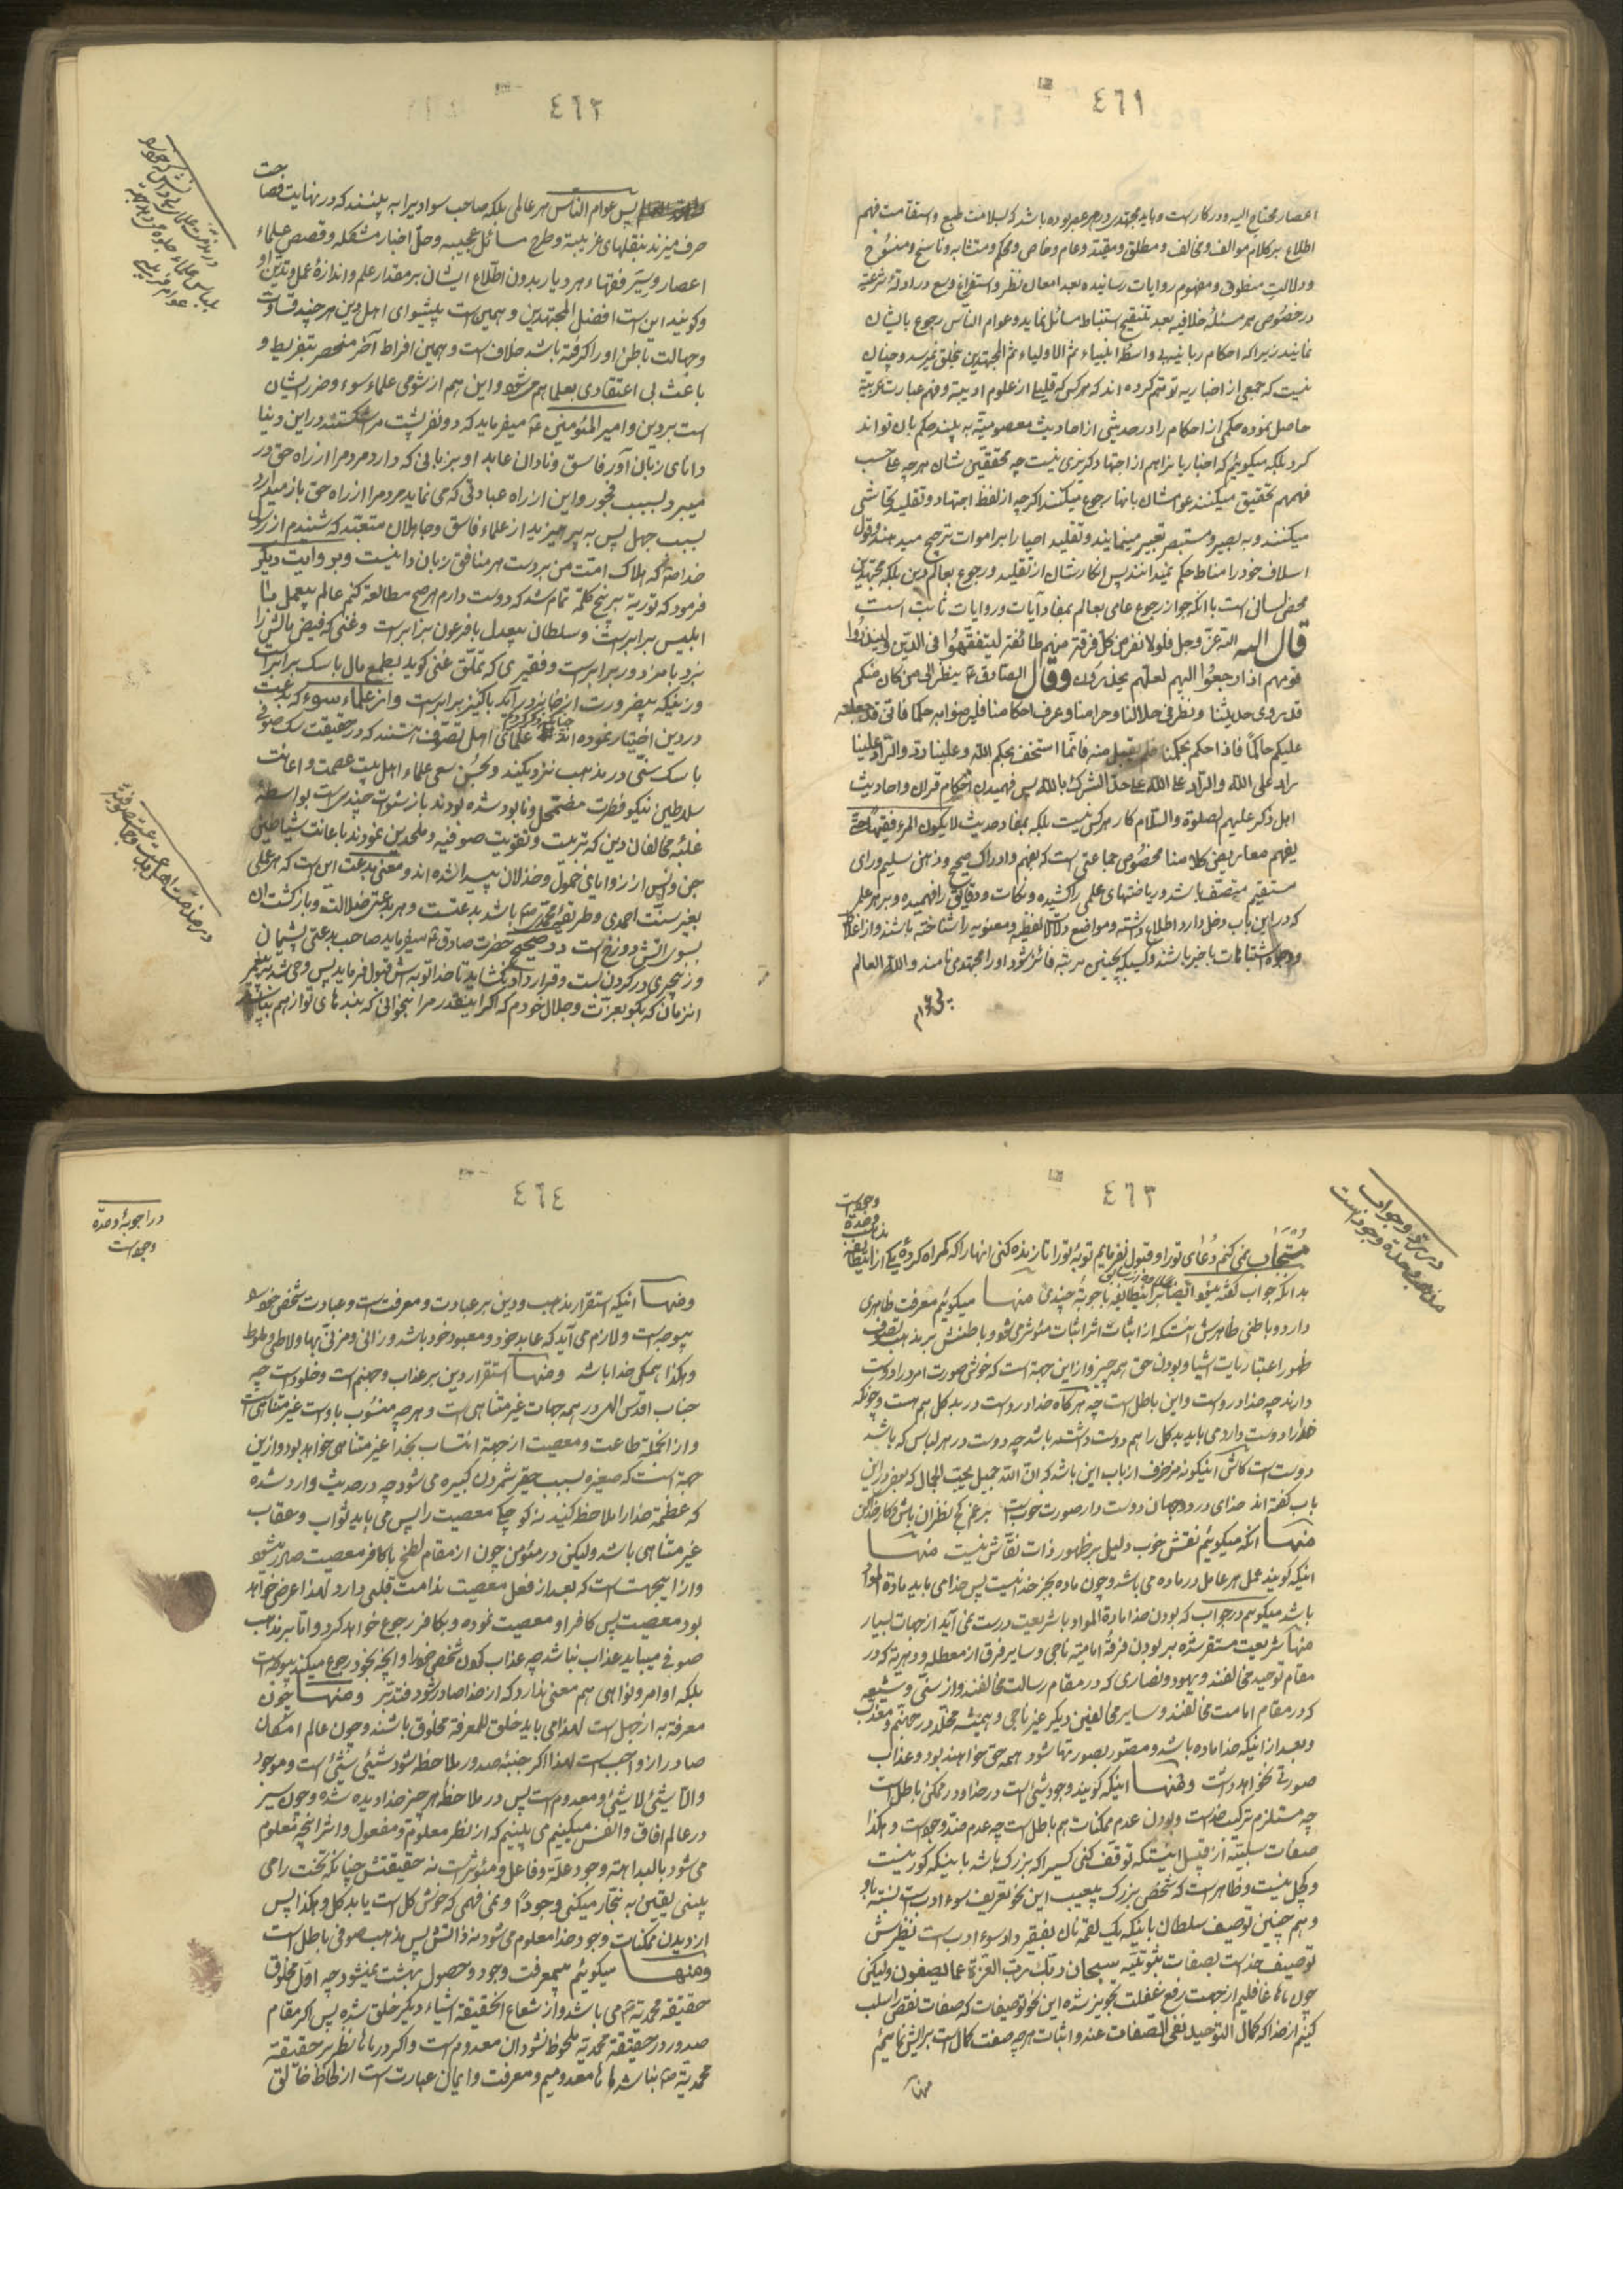 ٤٦١
اعصار محتاج الیه و در کار است و باید مجتهد در هر عصر بوده باشد که بسلامت طبع و استقامت فهم
اطلاع بر کلام موالف و مخالف و مطلق و مقید و عام و خاص و محکم و متشابه و ناسخ و منسوخ
و دلالت منطوق و مفهوم روایات رسانیده بعد امعان نظر و استفراغ وسع در ادلهٔ شرعیه
در خصوص هر مسئلهٔ خلافیه بعد تنقیح استنباط مسائل نماید و عوام الناس رجوع بایشان
نمایند زیرا که احکام ربانیه بی واسطهٔ انبیاء ثم الاولیاء ثم المجتهدین بخلق نمیرسد و چنان
نیست که جمعی از اخباریه توهم کرده اند که هر کس که قلیلی از علوم ادبیه و فهم عبارت عربیة
حاصل نموده حکمی از احکام را در حدیثی از احادیث معصومیّه به بیند حکم بان تواند
کرد بلکه میکوئیم که اخباریا نراهم از اجتهاد کزیری نیست چه محققین شان هر چه علی حسب
فهمهم تحقیق میکنند عوامشان بانها رجوع میکنند اکرچه از لفظ اجتهاد و تقلید تحاشی
میکنند و به بصیر و مستبصر تعبیر مینمایند و تقلید احیا را بر اموات ترجیح میدهند و قول
اسلاف خود را مناط حکم نمیدانند پس انکارشان از تقلید و رجوع بعالم دین بلکه مجتهدین
محض لسانی است با انکه جواز رجوع عامی بعالم بمفاد آیات و روایات ثابت است
قال الله الله عزّ وجل فلولا نفر من کل فرقة منهم طائفة لیتفقّهوا فی الدّین و لینذروا
قومهم اذا رجعوا الیهم لعلّهم یحذرون وقال الصّادق ع ینظر الی من کان منکم
قد روی حدیثنا و نظر فی حلالنا و حرامنا و عرف احکامنا فلیرضوا به حکما فانی قد جعلته
علیکم حاکمًا فاذا حکم بحکمنا فلم یقبل منه فانّما استخف بحکم الله و علینا رد والرّاد علینا
راد علی الله و الرّاد علی الله علی حدّ الشّرک بالله پس فهمیدن احکام قران و احادیث
اهل ذکر علیهم الصلوة والسّلام کار هر کس نیست بلکه بمفاد حدیث لا یکون المرء فقیهًا حتّی
یفهم معاریض کلامنا مخصوص جماعتی است که بفهم و ادراک صحیح و ذهن سلیم و رای
مستقیم متصف باشد و ریاضتهای علمی را کشیده و نکات و دقایق را فهمیده و بر هر علم
که در این باب دخل دارد اطلاع داشته و مواضع دلالات لفظیه و معنویه را شناخته باشند و از اغلاط
و وجوه اشتباهات باخبر باشند و کسیکه بچنین مرتبه فائز شود او را مجتهد می نامند والله العالم
٤٦٢
حت
پس عوام الناس هر عالمی بلکه صاحب سوادیرا به بینند که در نهایت فصا
حرف میزند بنقلهای غریبه و طرح مسائل عجیبه و حلّ اخبار مشکله و قصص علماء
اعصار و سیَر فقهاء هر دیار بدون اطلاع ایشان بر مقدار علم و اندازهٔ عمل و تدین او
و کویند این است افضل المجتهدین و همین است پیشوای اهل دین هر چند قساوت
و جهالت باطن او را کرفته باشد خلاف است و همین افراط آخر منحصر بتفریط و
باعث بی اعتقادی بعلما هم میشود و این هم از شومی علماء سوء و ضرر ایشان
است بر دین و امیر المؤمنین ع میفرماید که دو نفر پشت مرا شکستند در این دنیا
دانای زبان آور فاسق و نادان عابد او بزبانی که دارد مردمرا از راه حق در
میبرد بسبب فجور و این از راه عبادتی که می نماید مردمرا از راه حق باز میدارد
بسبب جهل پس بپرهیزید از علماء فاسق و جاهلان متعبّد که شنیدم از رسول
خدا ص که هلاک امّت من بر دست هر منافق زبان دانیست و بروایت دیکر
فرمود که توریة به پنج کلمه تمام شد که دوست دارم هر صبح مطالعه کنم عالم بیعمل با
ابلیس برابر است و سلطان بیعدل با فرعون برابر است و غنی که فیض مالش را
نبرد با مزدور برابر است و فقیری که تملّق غنی کوید بطمع مال با سک برابر است
و زنیکه بیضرورت از خانه در آید با کنیز برابر است و از علماء سوء که بدعت
در دین اختیار نموده اند علمای اهل تصوّف هستند که در حقیقت سک صوفی
با سک سنّی در مذهب نزدیکند و بحسن سعی علماء اهل بیت عصمت و اعانت
سلاطین نیکو فطرت مضمحل و نابود شده بودند باز سنوات چندی است بواسطهٔ
غلبهٔ مخالفان دین که تربیت و تقویت صوفیه و ملحدین نمودند باعانت شیاطین
جن و انس از زوایای خمول و خذلان پیدا شده اند و معنی بدعت این است که هر عملی
بغیر سنّت احمدی و طریقهٔ محمّدی ص باشد بدعتست و هر بدعتی ضلالت و بازکشت ان
بسوی اتش دوزخ است در صحیح حضرت صادق ع میفرماید صاحب بدعتی پشیمان
و زنجیری در کردن بست و قرار داد نکشاید تا خدا توبه اش قبول فرماید پس وحی شد به پیغمبر
انزمان که بکو بعزت و جلال خودم که اکر اینقدر مرا بخوانی که بندهای تو از هم بپاشد
٤٦٣
مستجاب نمی کنم دعای تو را و قبول نفرمایم توبهٔ تو را تا زنده کنی انها را که کمراه کردهٔ
بدانکه جواب کفته میشود
میکوئیم معرفت ظاهری
دارد و باطنی ظاهرش انستکه از اثبات اثر اثبات مؤثر میشود و باطنش بر مذهب تصوف
ظهور اعتباریات اشیا و بودن حق همه چیز و از این جهة است که خوش صورت امرد را دوست
دارند چه خدا در اوست و این باطل است چه هر کاه خدا در اوست در بد کل هم هست و چونکه
خدا را دوست دارد می باید بد کل را هم دوست داشته باشد چه دوست در هر لباس که باشد
دوست است کاش اینکونه مزخرف از باب این باشد که انّ الله جمیل یحبّ الجمال که بعضی در این
باب کفته اند خدای در دو جهان دوست دار صورت خوب است
منها انکه میکوئیم نقش خوب دلیل بر ظهور ذات نقّاش نیست منها
اینکه کویند عمل هر عامل در ماده می باشد و چون ماده بجز خدا نیست پس خدا می باید مادة المواد
باشد میکوئیم در جواب که بودن خدا مادة المواد با شریعت درست نمی آید از جهات بسیار
منها شریعت مستقر شده بر بودن فرقهٔ امامیّه ناجی و سایر فرق از معطله و دهریه که در
مقام توحید مخالفند و یهود و نصاری که در مقام رسالت مخالفند و از سنّی و شیعه
که در مقام امامت مخالفند و سایر مخالفین دیکر غیر ناجی و همیشه مخلّد در جهنّم و معذّب
و بعد از اینکه خدا ماده باشد و مصوّر بصورتها شود همه حق خواهند بود و عذاب
صورتی نخواهد داشت و منها اینکه کویند وجود شیئی است در خدا و در ممکن باطل است
چه مستلزم ترکیب خداست و بودن عدم ممکنات هم باطل است چه عدم ضد وجود است و هکذا
صفات سلبیّه از قبیل اینستکه توقف کنی کسیرا که بزرک باشد باینکه کور نیست
و کچل نیست و ظاهر است که شخص بزرک بیعیب این نحو تعریف سوء ادب است نسبة باو
و هم چنین توصیف سلطان باینکه یک لقمه نان بفقیر داد سوء ادب است نظیرش
توصیف خداست بصفات ثبوتیّه سبحان ربّک ربّ العزة عمّا یصفون و لیکن
چون ماها غافلیم از جهت رفع غفلت تجویز شده این نحو توصیفات که صفات نقص را سلب
کنیم از خدا که کمال التوحید نفی الصّفات عنه و اثبات هر چه صفت کمال است برایش نمائیم
منها
٤٦٤
در اجوبهٔ وحدة
وجود است
ومنها اینکه استقرار مذهب و دین بر عبادت و معرفت است و عبادت شخص خود را
بیوجه است و لازم می آید که عابد خود و معبود خود باشد و زانی و مزنی بها و لاطی و ملوط
و هکذا همکی خدا باشد ومنها استقرار دین بر عذاب و جهنم است و خلود است چه
جناب اقدس الهی در همه جهات غیر متناهی است و هر چه منسوب باوست غیر متناهی است
و از انجمله طاعت و معصیت از جهة انتساب بخدا غیر متناهی خواهد بود و از این
جهة است که صغیره بسبب حقیر شمردن کبیره می شود چه در حدیث وارد شده
که عظمة خدا را ملاحظه کنید نه کوچکی معصیت را پس می باید ثواب و عقاب
غیر متناهی باشد و لیکن در مؤمن چون از مقام لطخ با کافر معصیت صادر میشود
و از اینجهت است که بعد از فعل معصیت ندامت قلبی دارد لهذا عرضی خواهد
بود معصیت پس کافر او معصیت نموده و بکافر رجوع خواهد کرد و امّا بر مذهب
صوفی میباید عذاب نباشد چه عذاب کردن شخص خود را و انچه بخود رجوع میکند بیوجه است
بلکه اوامر و نواهی هم معنی ندارد که از خدا صادر شود فتدبّر ومنها چون
معرفة به از جهل است لهذا می باید خلق للمعرفة مخلوق باشند و چون عالم امکان
صادر از واجب است لهذا اکر جنبهٔ صدور ملاحظه شود شیئی شیئی است و موجود
والّا شیئی لا شیئی و معدوم است پس در ملاحظه هر چیز خدا دیده شده و چون سیر
در عالم افاق و انفس میکنیم می بینیم که از نظر معلوم و مفعول و اثر انچه معلوم
می شود بالبداهة وجود علّة و فاعل و مؤثر است نه حقیقتش چنانکه تخت را می
بینی یقین به نجّار میکنی وجودًا و نمی فهمی که خوش کل است یا بد کل و هکذا پس
از دیدن ممکنات وجود خدا معلوم می شود نه ذاتش پس مذهب صوفی باطل است
ومنها میکوئیم بیمعرفت وجود و حصول بهشت نمیشود چه اوّل مخلوق
حقیقة محمدیّه ص می باشد و از شعاع انحقیقة اشیاء دیکر خلق شده پس اکر مقام
صدور در حقیقة محمدیّه ملحوظ نشود ان معدوم است و اکر در ماها نظر بر حقیقة
محمدیّه ص نباشد ماها معدومیم و معرفت و ایمان عبارت است از لحاظ خالق